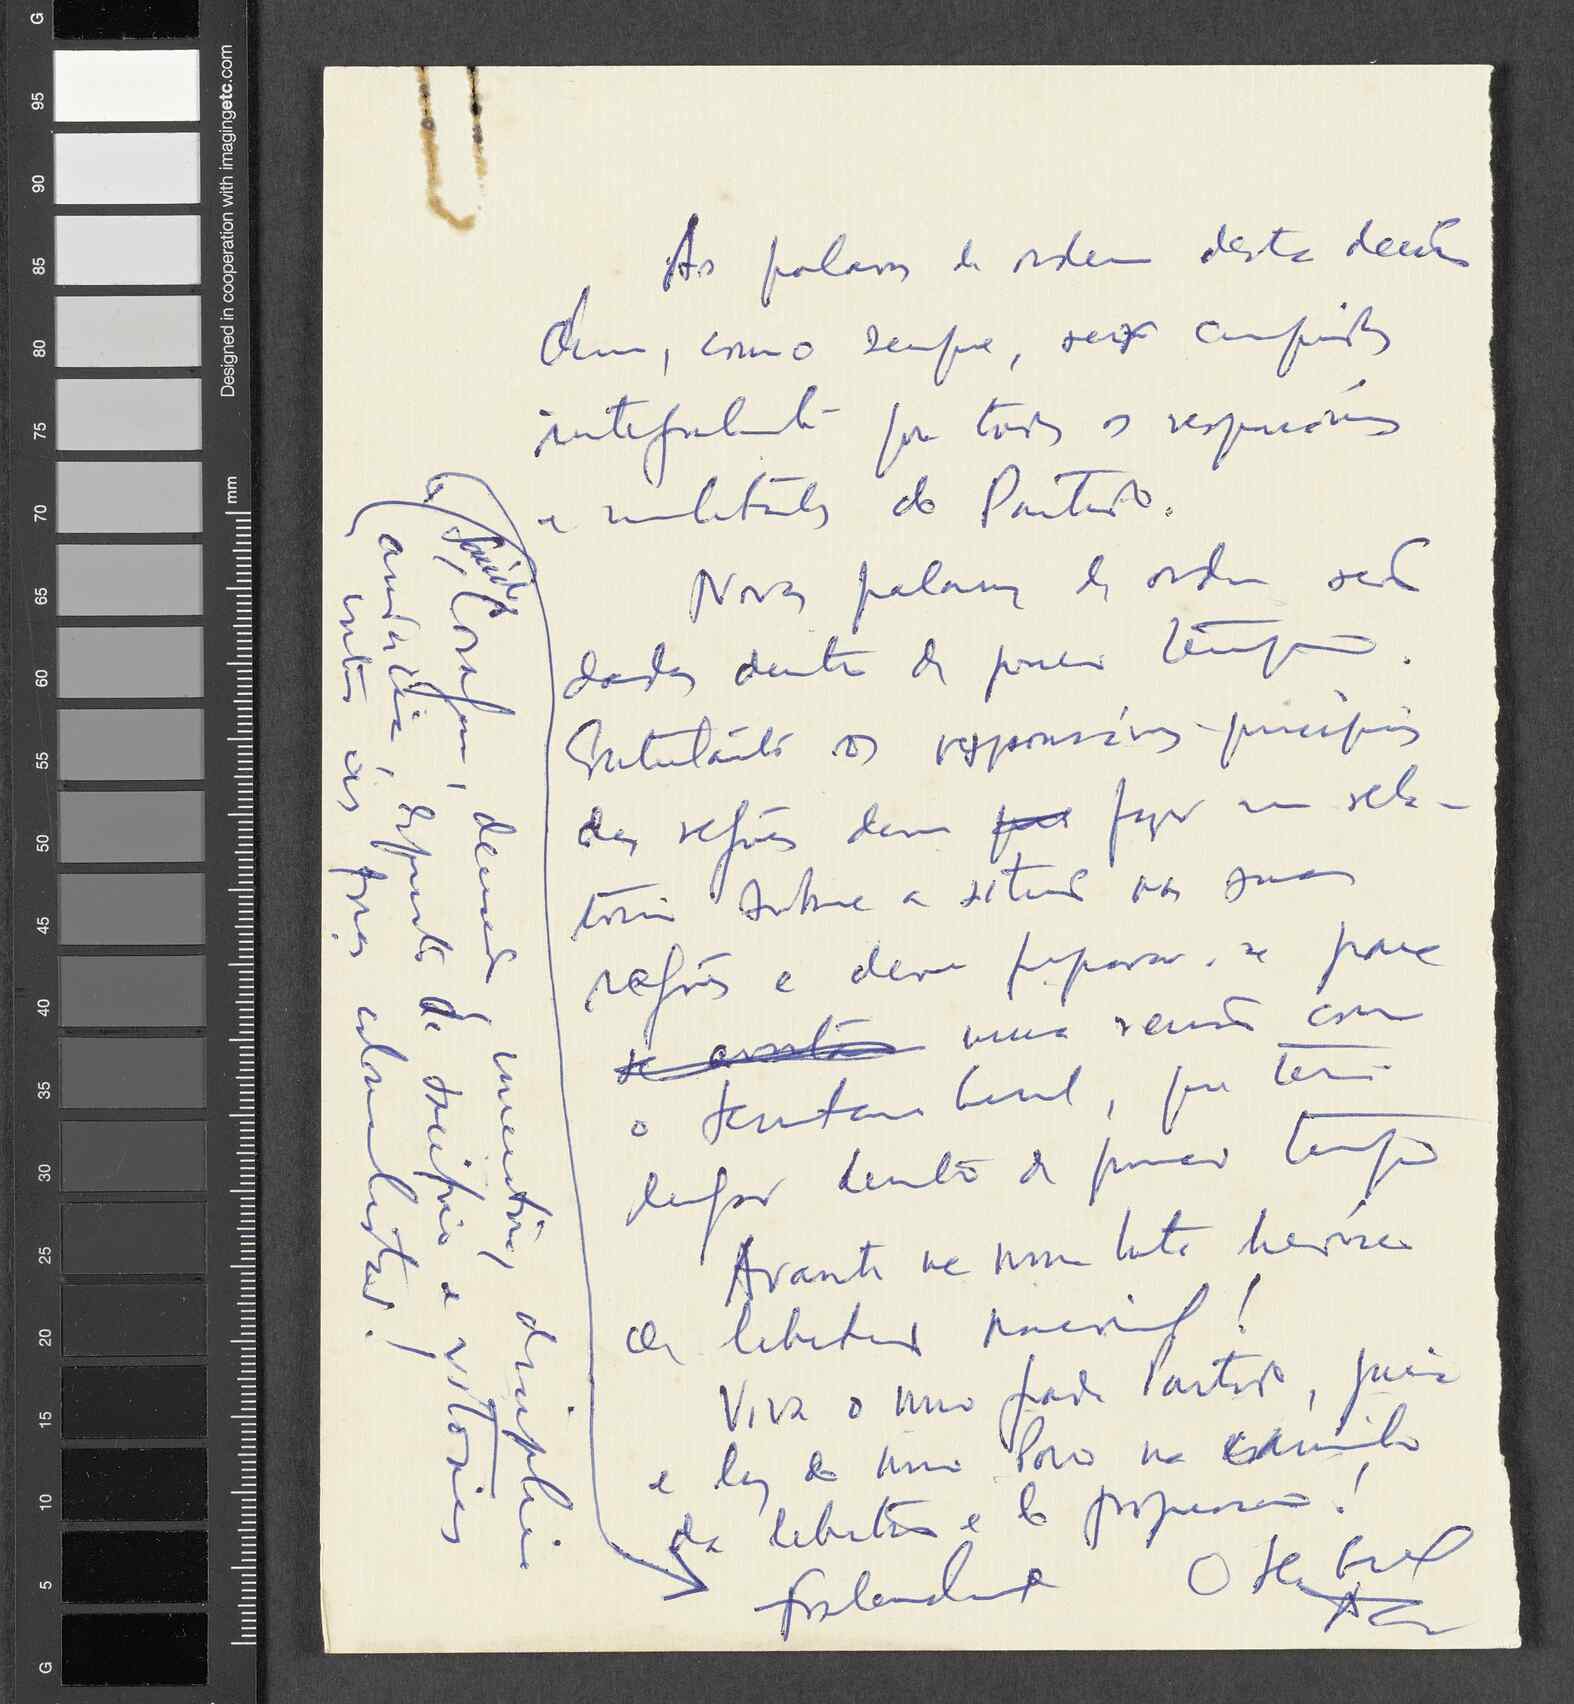 As palavras de ordem desta
devem, como sempre, ser cumpridas
integralmente por todos os responsáveis
e militantes do Partido.
Novas palavras de ordem serão
dadas dentro de pouco tempo.
Entretanto os responsáveis principais
das regiões devem fazer um rela-
tório sobre a situação nas suas
regiões e devem preparar-se para
uma reunião com
o Secretário Geral, que terá
lugar dentro de pouco tempo
Avante na nossa luta heróica
de libertação nacional!
Viva o nosso grande Partido, guia
e luz do nosso Povo no caminho
da libertação e do progresso!
O Sec. Geral
Coragem, decisão, iniciativa, disciplina
audácia, espírito de sacrifício e vitórias
contra as forças colonialistas!
Designed in cooperation with imagingetc.com
mm
G
95
90
85
80
75
70
65
60
55
50
45
40
35
30
25
20
15
10
5
G